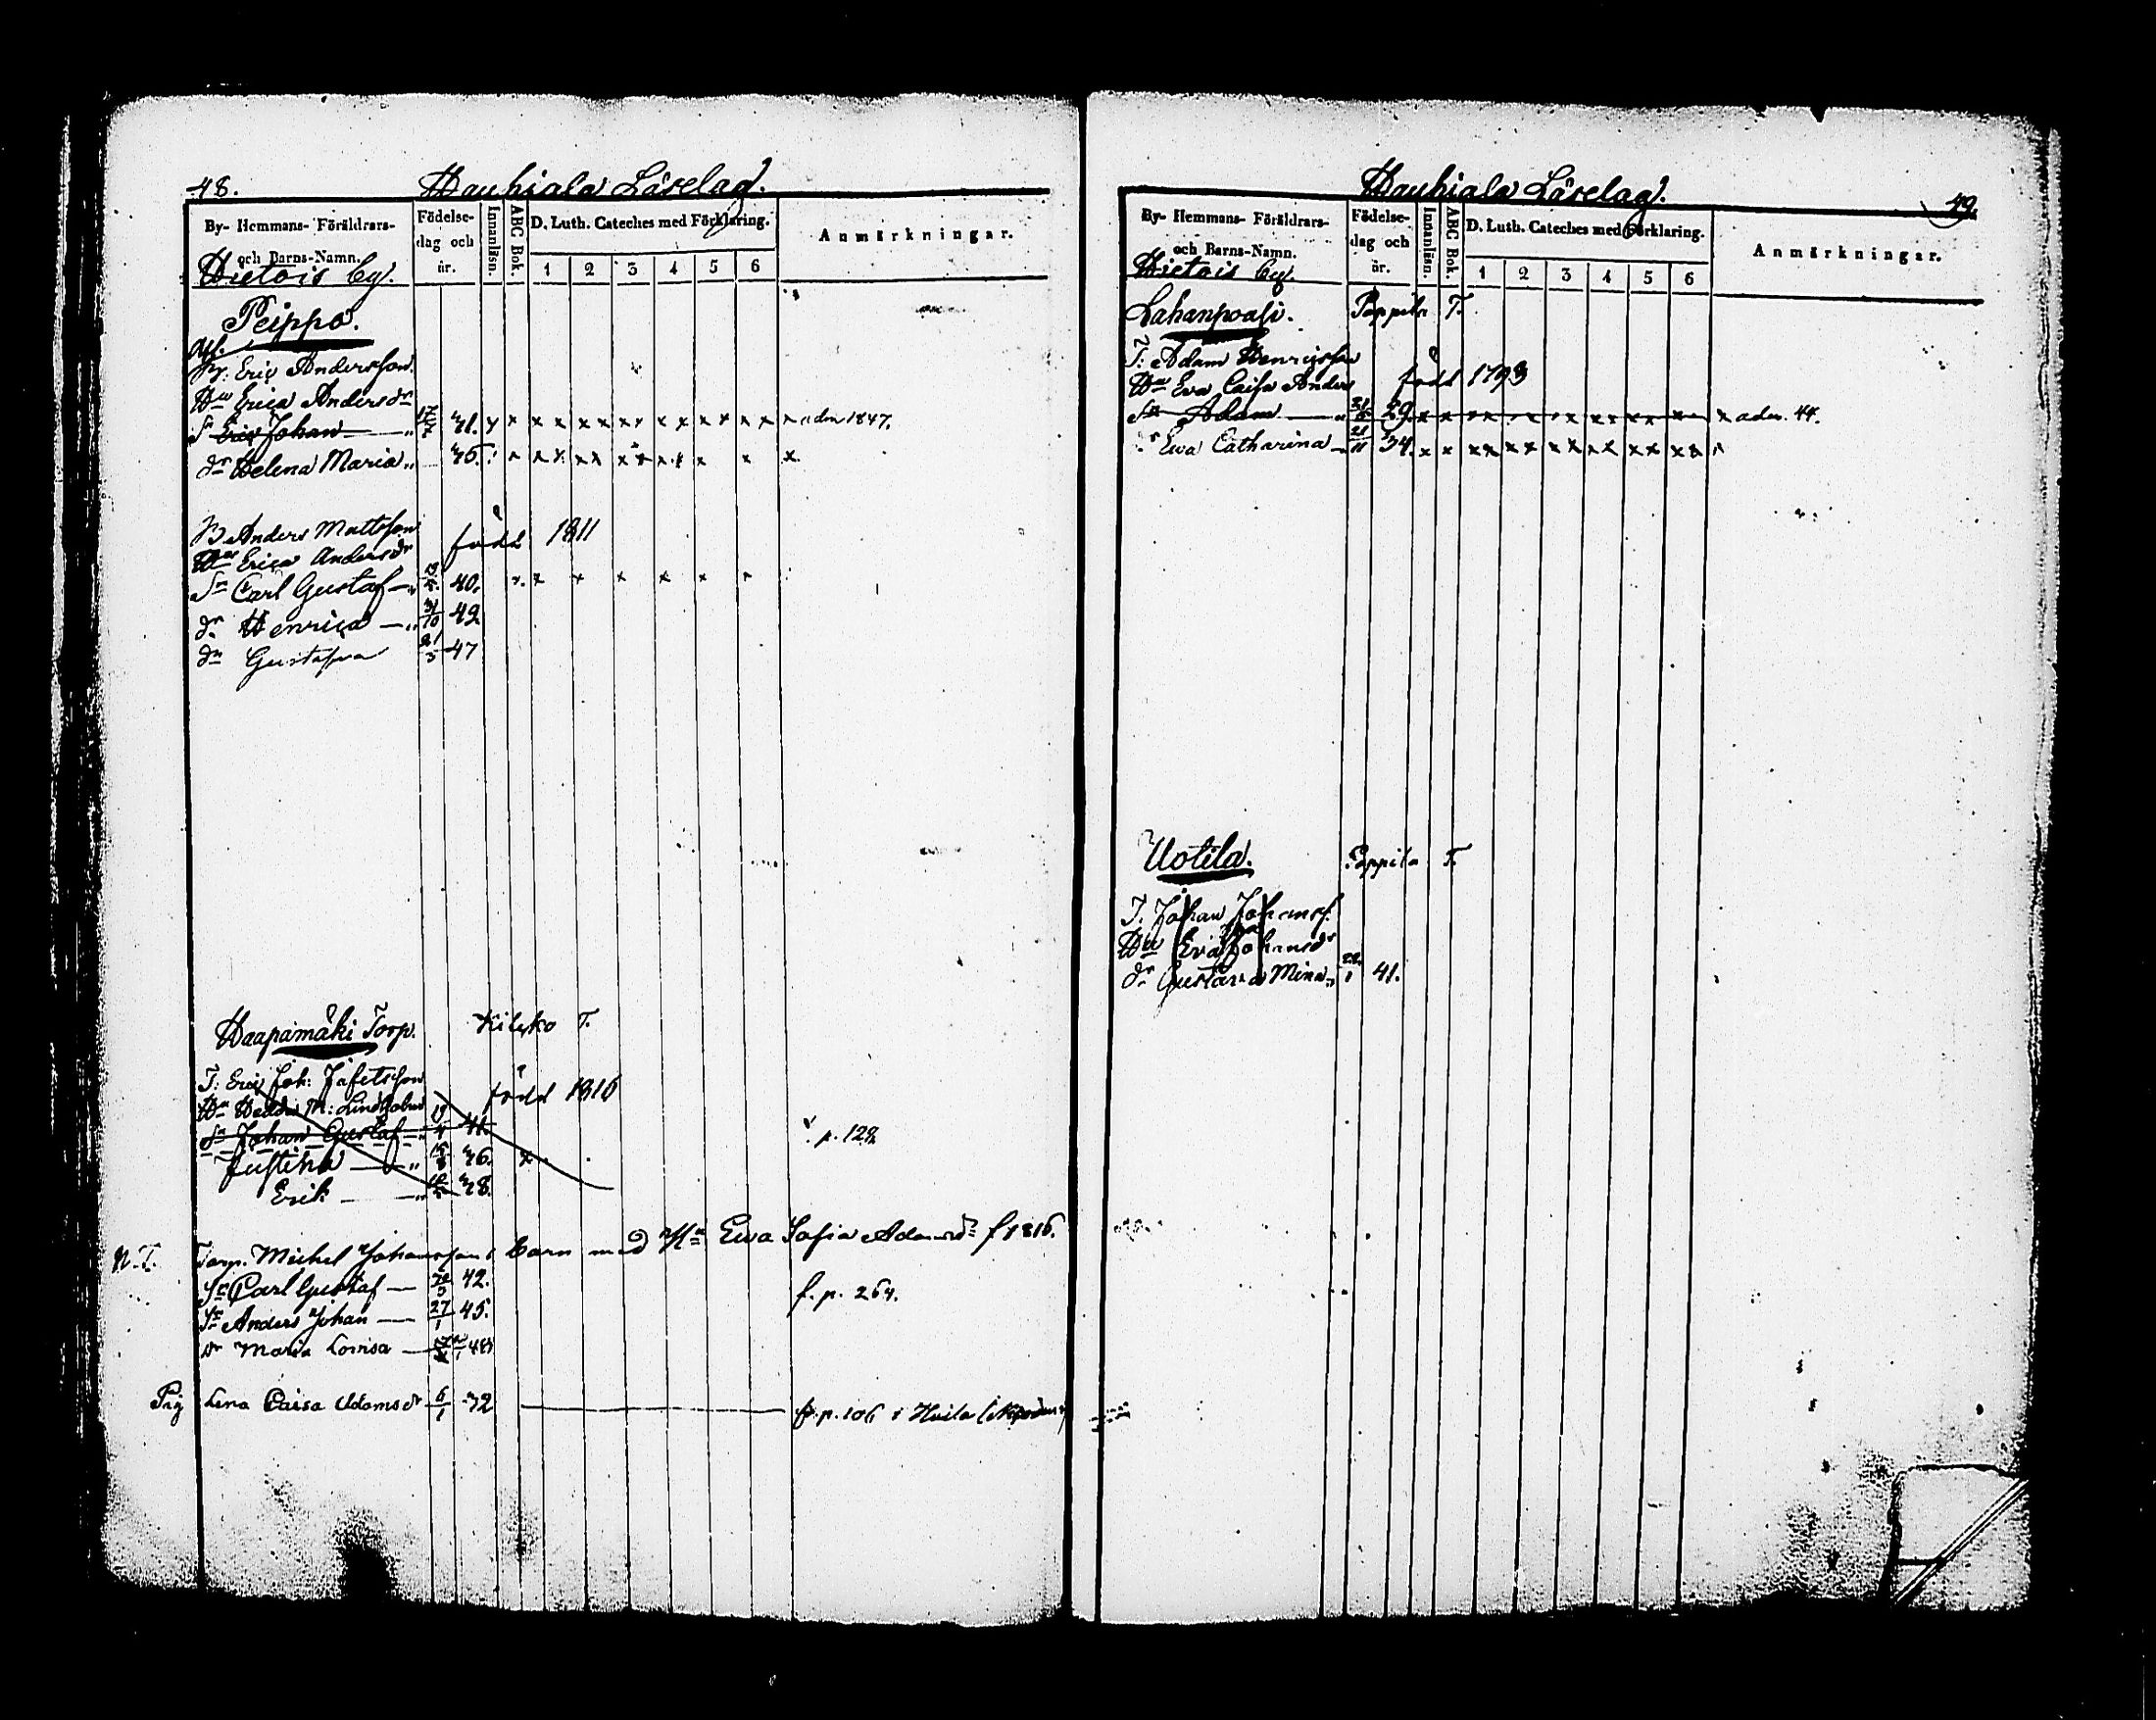 48.
Hauhiala Läselag.
By- Hemmans- Föräldrars- och Barns-Namn.
Födelse-dag och år.
Innanläsn.
ABC Bok.
D. Luth. Cateches med Förklaring.
1 2 3 4 5 6
Anmärkningar.
Hietois by.
Peippo.
Eric Andersson
Hu Erica Andersdr
Sn Eric Johan 17/7 31. x x x x x x x x x x x x x x x adm 1847.
dr Helena Maria " 36. x x x x x x x x x x
B Anders Mattsson
Hu Erica Andersdr född 1811
Sn Carl Gustaf " 40. x x x x x x
dr Henrica " 31/10 42.
dr Gustafva 21/3 47
Haapamäki Torp. Kilcko T.
T: Eric Joh: Jafetsson
Hu Hedda M: Lindholm född 1816
Sn Johan Gustaf " 41. p. 128
Justina " 36. x
Erik " 38.
N.T. Torp. Michel Johanssons barn med H Ewa Sofia Adamsdr f 1816.
Sn Carl Gustaf 30/3 42. f. p. 264.
Sn Anders Johan 27/1 45.
dr Maria Lovisa 48
Pig Lena Caisa Adamsdr 6/1 32 f. p. 106 i Huila
Hauhiala Läselag.
49.
By- Hemmans- Föräldrars- och Barns-Namn.
Födelse-dag och år.
Innanläsn.
ABC Bok.
D. Luth. Cateches med Förklaring.
1 2 3 4 5 6
Anmärkningar.
Hietois by.
Lahanpoasi. Pappila T.
T: Adam Henricsson
Hu Eva Caisa Anders född 1793
Sn Adam " 29. x x x x x x x x x x x x x x x adm. 44.
Ewa Catharina 21/11 34. x x x x x x x x x x x x x x
Uotila. Pappila T.
T. Johan Johansf.
Hu Eva Johansdr
dr Gustava Mina " 22/1 41.